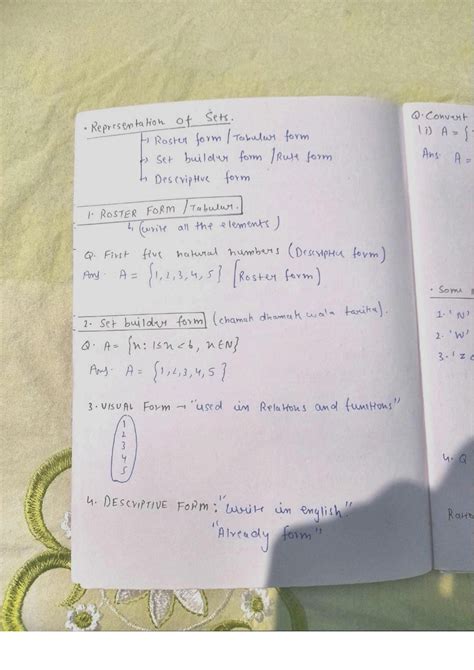 · Representation of Sets.
↳ Roster form / Tabular form
↳ Set builder form / Rule form
↳ Descriptive form
1. ROSTER FORM / Tabular.
↳ (write all the elements)
Q. First five natural numbers (Descriptive form)
Ans. A = {1,2,3,4,5} [Roster form)
2. Set builder form (chamak dhamak wala tarika).
Q. A = {n: 1≤n<6, n∈N}
Ans. A = {1,2,3,4,5}
3. VISUAL FORM → "used in Relations and functions"
1
2
3
4
5
4. DESCRIPTIVE FORM: "write in english."
"Already form"
Q. Convert
(1) A = {
Ans. A =
· Some
1. 'N'
2. 'W'
3. 'Z
4. Q